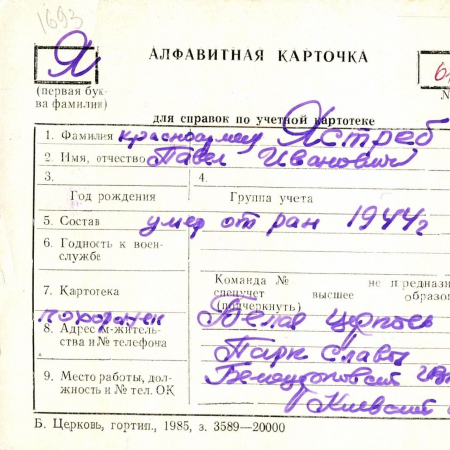 1693
Я
АЛФАВИТНАЯ КАРТОЧКА
(первая бук-
ва фамилии)
№
для справок по учетной картотеке
1. Фамилия красноармеец Ястреб
2. Имя, отчество Павел Иванович
3. 4.
Год рождения Группа учета
5. Состав умер от ран 1944г
6. Годность к воен-
службе
7. Картотека
Команда № не предназна
спецучет высшее образов
(подчеркнуть)
похоронен Белая Церковь
8. Адрес м-житель-
ства и № телефона
Парк Славы
9. Место работы, дол-
жность и № тел. ОК
Белоцерковский
Киевский
Б. Церковь, гортип., 1985, з. 3589—20000